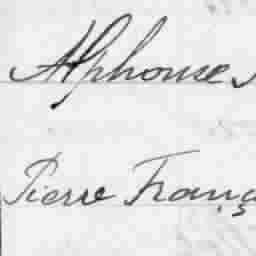 Alphonse
Pierre Franç